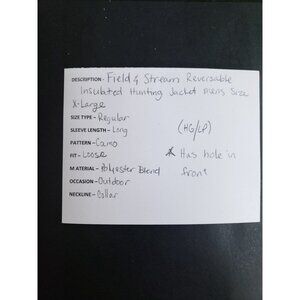 DESCRIPTION - Field & Stream Reversable
Insulated Hunting Jacket mens Size
X-Large
SIZE TYPE - Regular
SLEEVE LENGTH - Long
(HG/LP)
PATTERN - Camo
FIT - Loose
* Has hole in
front
MATERIAL - Polyester Blend
OCCASION - Outdoor
NECKLINE - Collar